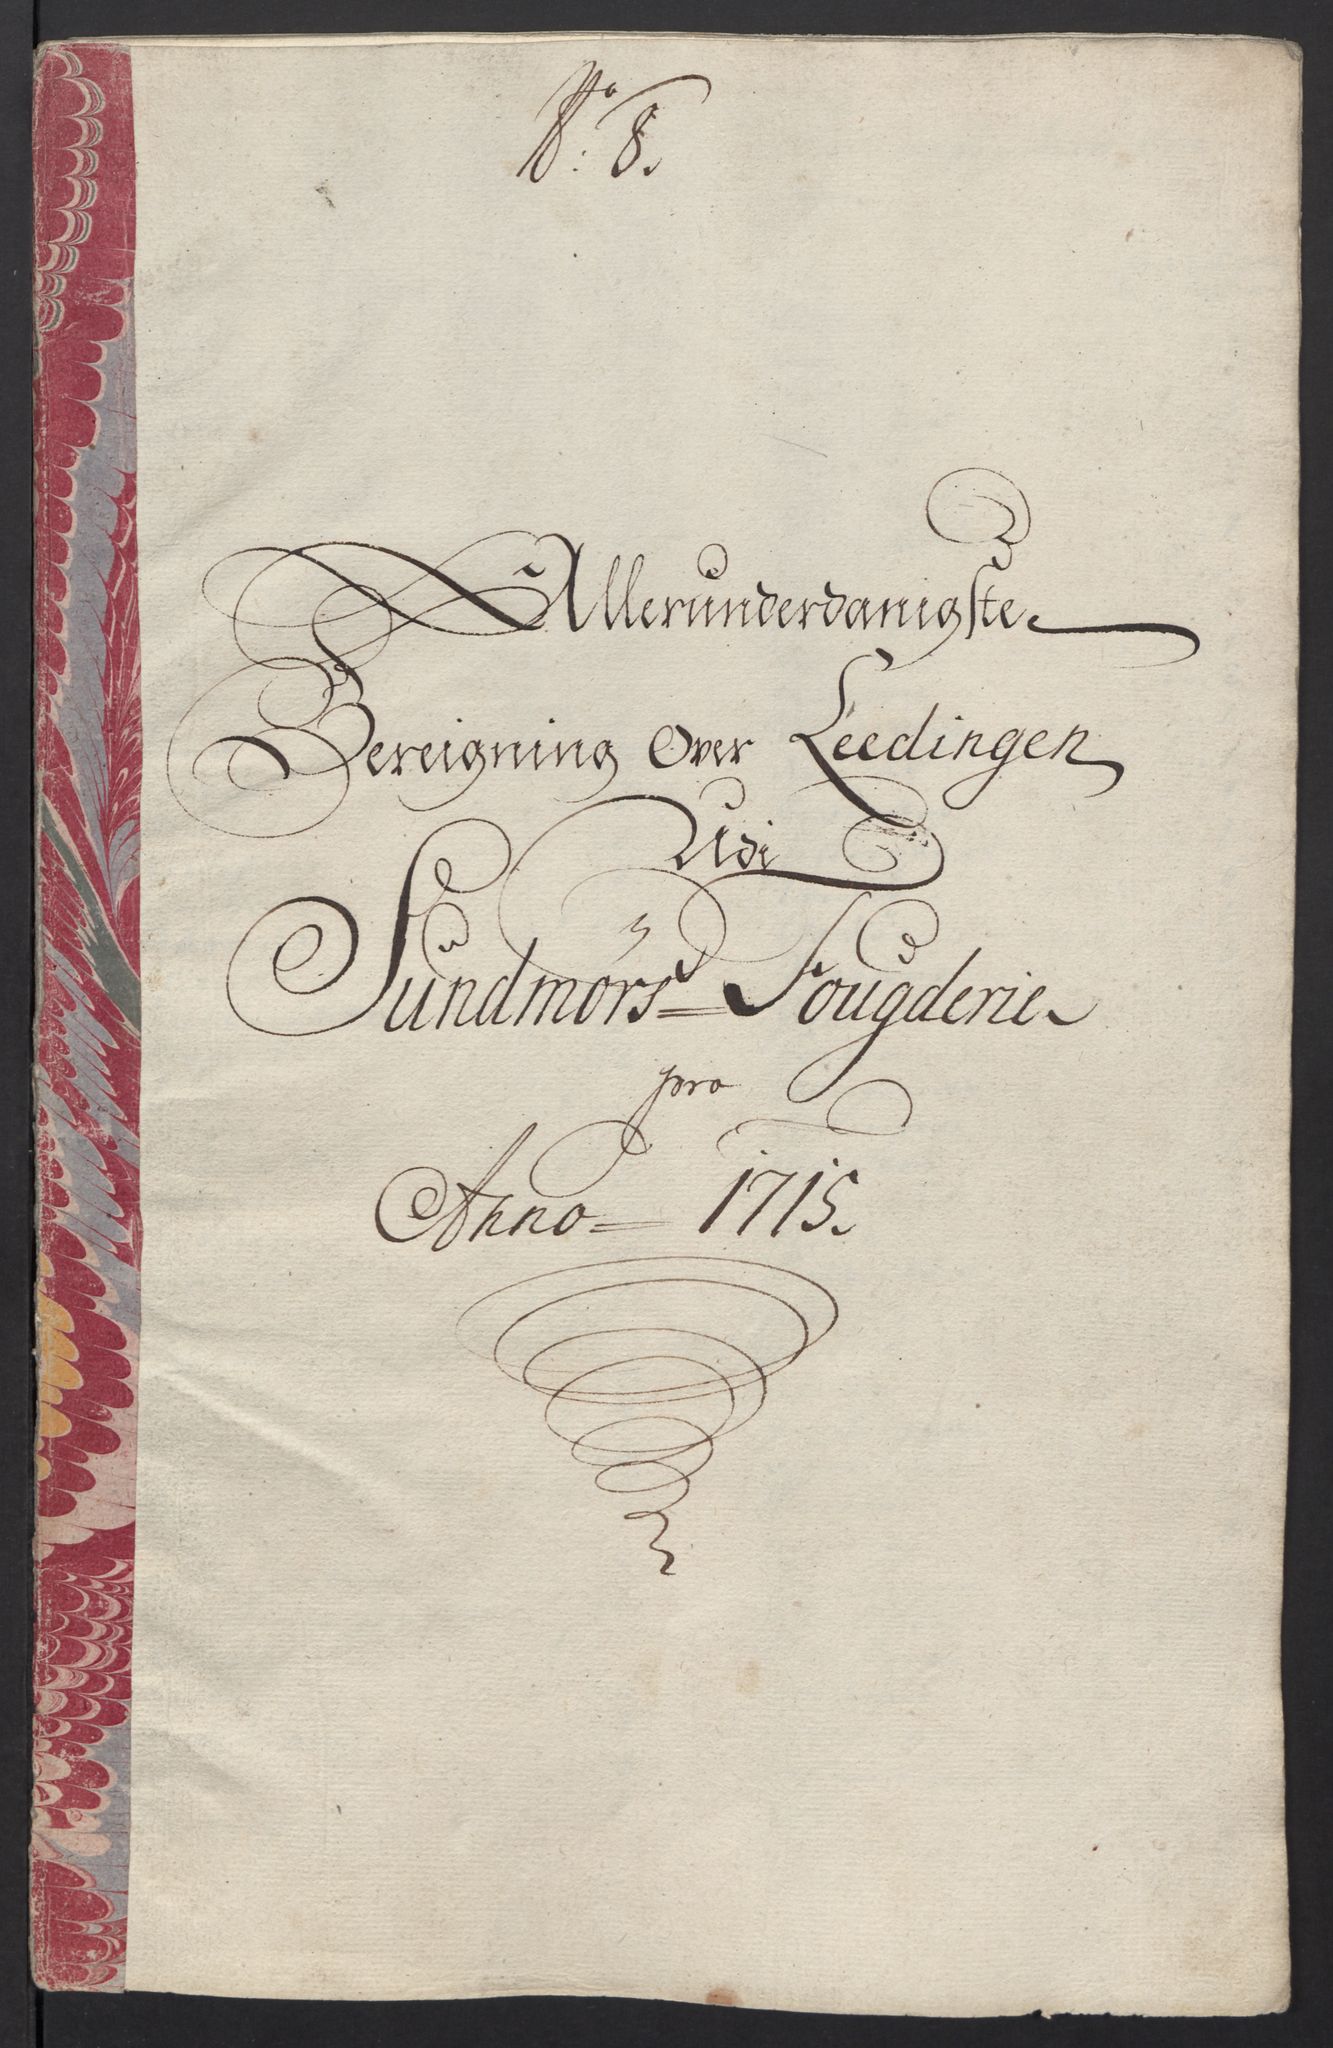 No: 8.
Allerunderdanigste
Bereigning Over Leedingen
Udi
Sundmørs= Fougderie
pro
Anno= 1715.